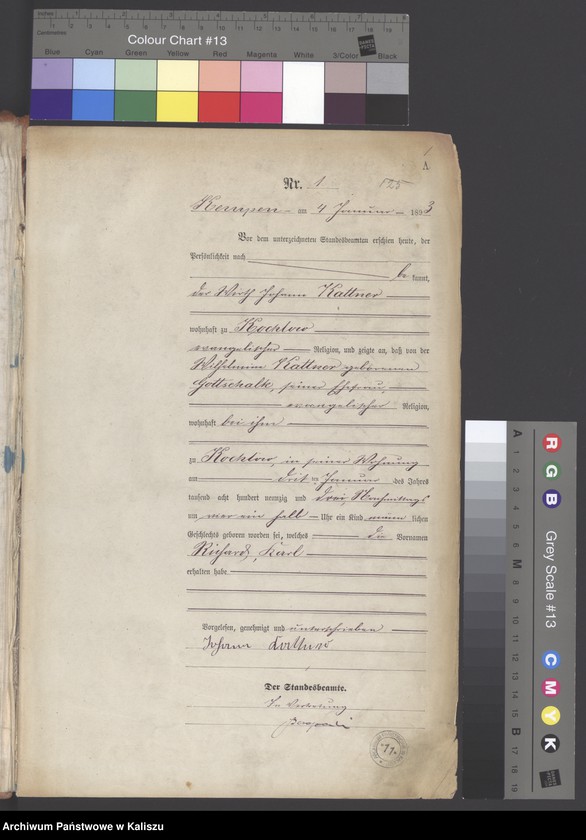 Colour Chart #13
Blue Cyan Green Yellow Red Magenta White 3/Color Black
A
Nr. 1 125
Kempen am 4 Januar 1893
Vor dem unterzeichneten Standesbeamten erschien heute, der
Persönlichkeit nach
be kannt,
der Wirth Johann Kattner
wohnhaft zu Kochlow
evangelischer Religion, und zeigte an, daß von der
Wilhelmine Kattner geborenen
Gottschalk, seiner Ehefrau,
evangelischer Religion,
wohnhaft bei ihm
zu Kochlow, in seiner Wohnung
am Januar des Jahres
tausend acht hundert neunzig und drei, Nachmittags
um ein halb Uhr ein Kind männ lichen
Geschlechts geboren worden sei, welches die Vornamen
Richard, Karl
erhalten habe
Vorgelesen, genehmigt und unterschrieben
Johann Kattner
Der Standesbeamte.
In Vertretung
11.
Grey Scale #13
R G B
C M Y K
A 1 2 3 4 5 6 M 8 9 10 11 12 13 14 15 B 17 18 19
Archiwum Państwowe w Kaliszu